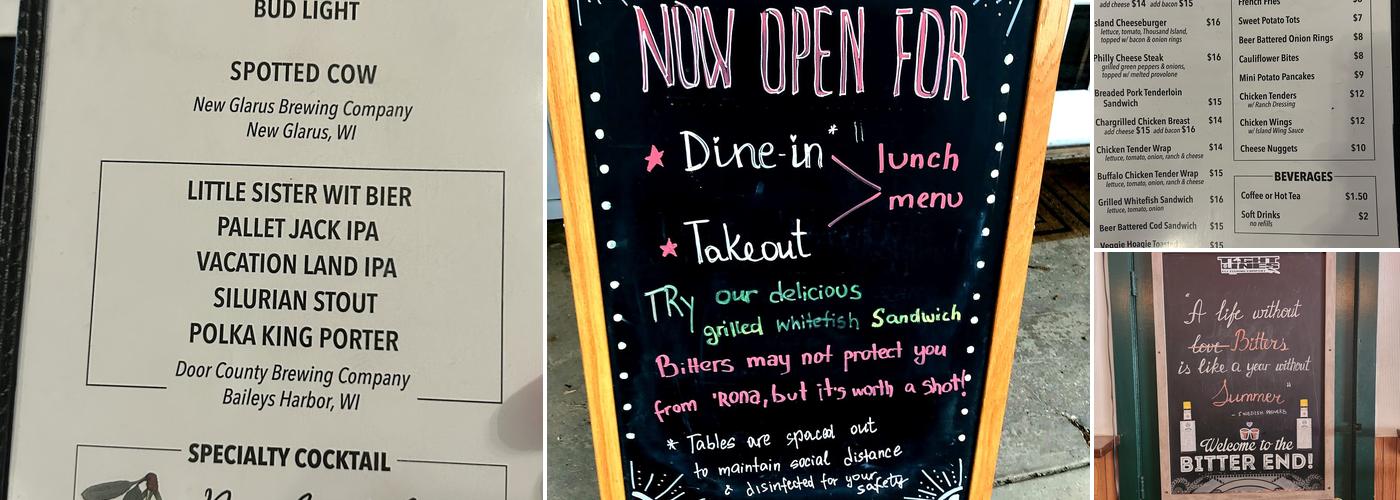 BUD LIGHT
SPOTTED COW
New Glarus Brewing Company
New Glarus, WI
LITTLE SISTER WIT BIER
PALLET JACK IPA
VACATION LAND IPA
SILURIAN STOUT
POLKA KING PORTER
Door County Brewing Company
Baileys Harbor, WI
SPECIALTY COCKTAIL
NOW OPEN FOR
Dine-in* lunch
menu
Takeout
TRY our delicious
grilled whitefish Sandwich
Bitters may not protect you
from 'RONA, but it's worth a shot!
* Tables are spaced out
to maintain social distance
& disinfected for your safety
add cheese $14 add bacon $15
sland Cheeseburger $16
lettuce, tomato, Thousand Island,
topped w/ bacon & onion rings
Philly Cheese Steak $16
grilled green peppers & onions,
topped w/ melted provolone
Breaded Pork Tenderloin
Sandwich $15
Chargrilled Chicken Breast $14
add cheese $15 add bacon $16
Chicken Tender Wrap $14
lettuce, tomato, onion, ranch & cheese
Buffalo Chicken Tender Wrap $15
lettuce, tomato, onion, ranch & cheese
Grilled Whitefish Sandwich $16
lettuce, tomato, onion
Beer Battered Cod Sandwich $15
Veggie Hoagie Toasted $15
French Fries
Sweet Potato Tots $7
Beer Battered Onion Rings $8
Cauliflower Bites $8
Mini Potato Pancakes $9
Chicken Tenders $12
w/ Ranch Dressing
Chicken Wings $12
w/ Island Wing Sauce
Cheese Nuggets $10
BEVERAGES
Coffee or Hot Tea $1.50
Soft Drinks $2
no refills
"A life without
love Bitters
is like a year without
Summer"
- SWEDISH PROVERB
Welcome to the
BITTER END!